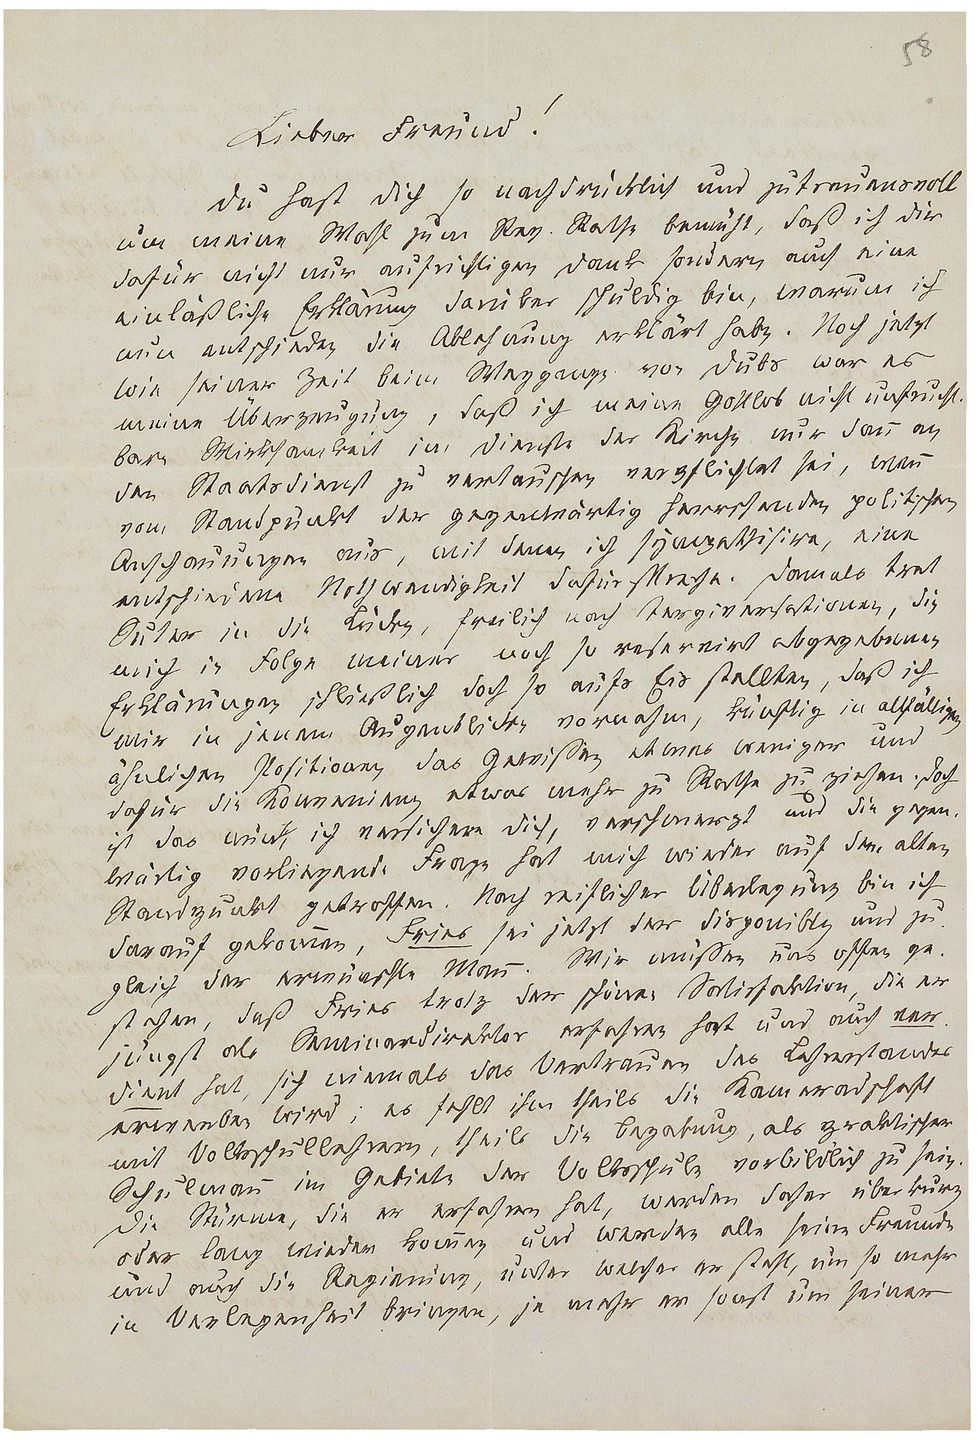 58
Lieber Freund!
Du hast Dich so nachdrücklich und zutrauensvoll
um meine Wahl zum Reg. Rathe bemüht, daß ich dir
dafür nicht nur aufrichtigen Dank sondern auch eine
einläßliche Erklärung darüber schuldig bin, warum ich
nun entschieden die Ablehnung erklärt habe. Noch jetzt
wie seiner Zeit beim Weggange von Dubs war es
meine Überzeugung, daß ich meine Gottlob nicht unfrucht-
bare Wirksamkeit im Dienste der Kirche nur dann an
den Staatsdienst zu vertauschen verpflichtet sei, wenn
vom Standpunkt der gegenwärtig herrschenden politischen
Anschauungen aus, mit denen ich sympathisire, eine
entschiedene Nothwendigkeit dafür spreche. Damals trat
Suter in die Lücke, freilich nach Tergiversationen, die
mich in Folge meiner noch so reservirt abgegebenen
Erklärungen schließlich doch so aufs Eis stellten, daß ich
mir in jenem Augenblicke vornahm, künftig in allfälligen
ähnlichen Positionen das Gewissen etwas weniger und
dafür die Konvenienz etwas mehr zu Rathe zu ziehen. Doch
ist das nun, ich versichere dich, verschmerzt und die gegen-
wärtig vorliegende Frage hat mich wieder auf dem alten
Standpunkt getroffen. Nach reiflicher Überlegung bin ich
darauf gekommen, Fries sei jetzt der disponible und zu-
gleich der erwünschte Mann. Wir müssen uns offen ge-
stehen, daß Fries trotz der schönen Satisfaktion, die er
jüngst als Seminardirektor erfahren hat und auch ver-
dient hat, sich niemals das Vertrauen des Lehrerstandes
erwerben wird; es fehlt ihm theils die Kameradschaft
mit Volksschullehrern, theils die Begabung, als praktischer
Schulmann im Gebiete der Volksschule vorbildlich zu sein.
Die Stürme, die er erfahren hat, werden daher über kurz
oder lang wieder kommen und werden alle seine Freunde
und auch die Regierung, unter welcher er steht, um so mehr
in Verlegenheit bringen, je mehr er sonst um seiner